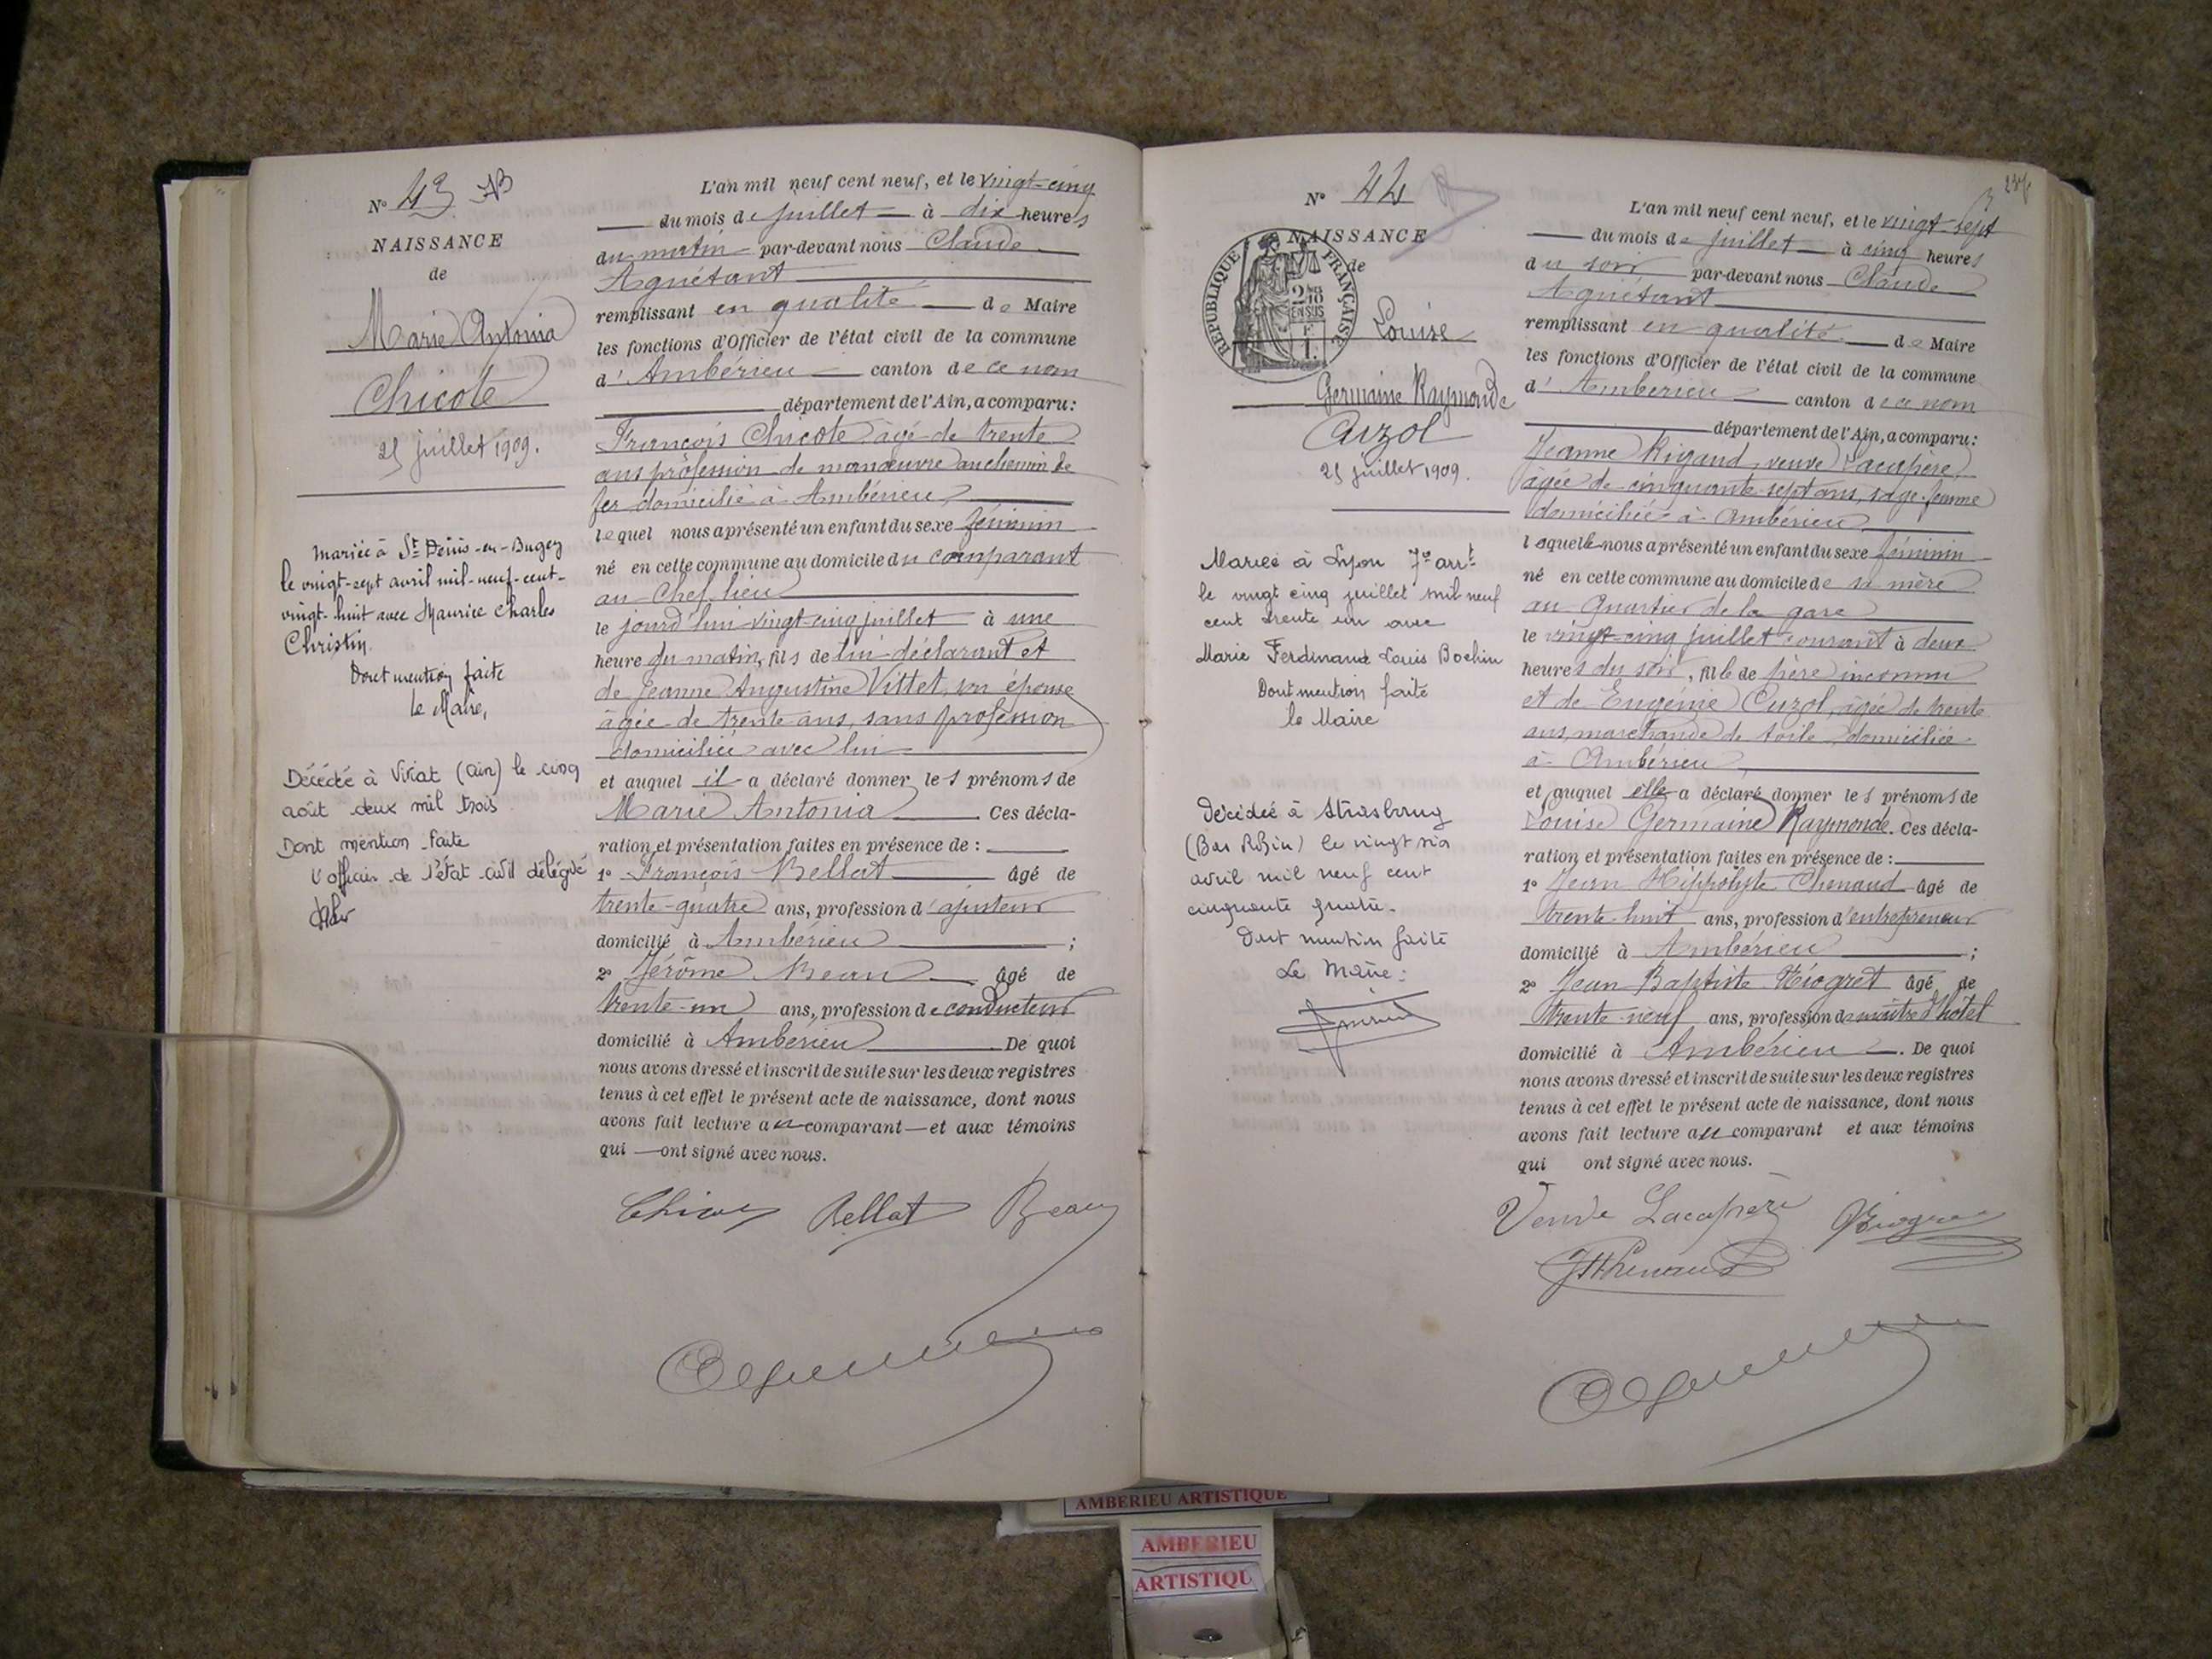 N° 43
NAISSANCE
de
Marie Antonia
Chicote
25 juillet 1909.
mariée à St Denis-en-Bugey
le vingt-sept avril mil-neuf-cent-
vingt-huit avec Maurice Charles
Christin.
Dont mention faite
le Maire,
Décédée à Viriat (Ain) le cinq
août deux mil trois
Dont mention faite
l'officier de l'état civil délégué
L'an mil neuf cent neuf, et le vingt-cinq
du mois de juillet à dix heures
du matin par-devant nous Claude
Aguétant
remplissant en qualité de Maire
les fonctions d'Officier de l'état civil de la commune
d'Ambérieu canton de ce nom
département de l'Ain, a comparu:
François Chicote âgé de trente
ans profession de manœuvre au chemin de
fer domicilié à Ambérieu,
lequel nous a présenté un enfant du sexe féminin
né en cette commune au domicile du comparant
au Chef lieu
le jourd'hui vingt-cinq juillet à une
heure du matin, fils de lui déclarant et
de Jeanne Augustine Vittet, son épouse
âgée de trente ans, sans profession
domiciliée avec lui
et auquel il a déclaré donner les prénoms de
Marie Antonia Ces décla-
ration et présentation faites en présence de :
1° François Bellat âgé de
trente-quatre ans, profession d'ajusteur
domicilié à Ambérieu ;
2° Jérôme Beau âgé de
trente-un ans, profession de conducteur
domicilié à Ambérieu De quoi
nous avons dressé et inscrit de suite sur les deux registres
tenus à cet effet le présent acte de naissance, dont nous
avons fait lecture au comparant et aux témoins
qui ont signé avec nous.
Bellat Beau
N° 44
NAISSANCE
de
RÉPUBLIQUE FRANÇAISE
2/10
EN SUS
Louise
Germaine Raymonde
Cuzol
25 juillet 1909.
Mariée à Lyon 7e arrt
le vingt cinq juillet mil neuf
cent trente un avec
Marie Ferdinand Louis Bochin
Dont mention faite
le Maire
Décédée à Strasbourg
(Bas Rhin) le vingt six
avril mil neuf cent
cinquante quatre.
Dont mention faite
Le Maire :
L'an mil neuf cent neuf, et le vingt-sept
du mois de juillet à cinq heures
du soir par-devant nous Claude
Aguétant
remplissant en qualité de Maire
les fonctions d'Officier de l'état civil de la commune
d'Ambérieu canton de ce nom
département de l'Ain, a comparu:
Jeanne Rigaud, veuve Lacapère,
âgée de cinquante-sept ans, sage-femme
domiciliée à Ambérieu
laquelle nous a présenté un enfant du sexe féminin
né en cette commune au domicile de sa mère
au Quartier de la gare
le vingt-cinq juillet courant à deux
heures du soir, fille de père inconnu
et de Eugénie Cuzol, âgée de trente
ans, marchande de toile, domiciliée
à Ambérieu,
et auquel elle a déclaré donner les prénoms de
Louise Germaine Raymonde. Ces décla-
ration et présentation faites en présence de :
1° Jean Hippolyte Chenaud âgé de
trente-huit ans, profession d'entrepreneur
domicilié à Ambérieu ;
2° Jean Baptiste Niogret âgé de
trente-neuf ans, profession de maître d'hôtel
domicilié à Ambérieu. De quoi
nous avons dressé et inscrit de suite sur les deux registres
tenus à cet effet le présent acte de naissance, dont nous
avons fait lecture au comparant et aux témoins
qui ont signé avec nous.
Veuve Lacapère
AMBERIEU ARTISTIQUE
AMBERIEU
ARTISTIQU